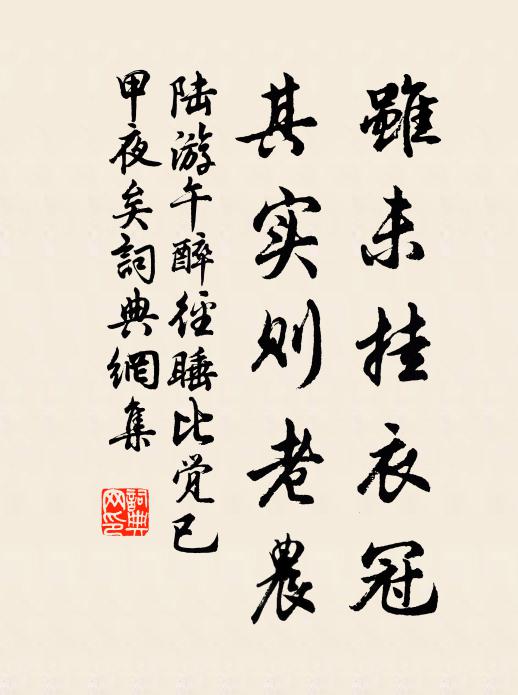 雖未挂衣冠
其实则老農
陆游午醉径睡比觉已
甲夜矣詞典網集
詞典
网印